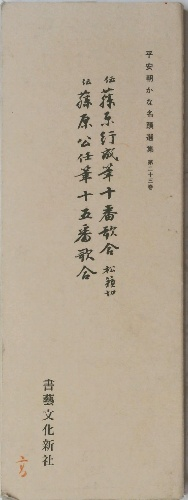 平安朝かな名蹟選集 第二十三巻
伝 藤原行成筆十番歌合 松籟切
伝 藤原公任筆十五番歌合
書藝文化新社